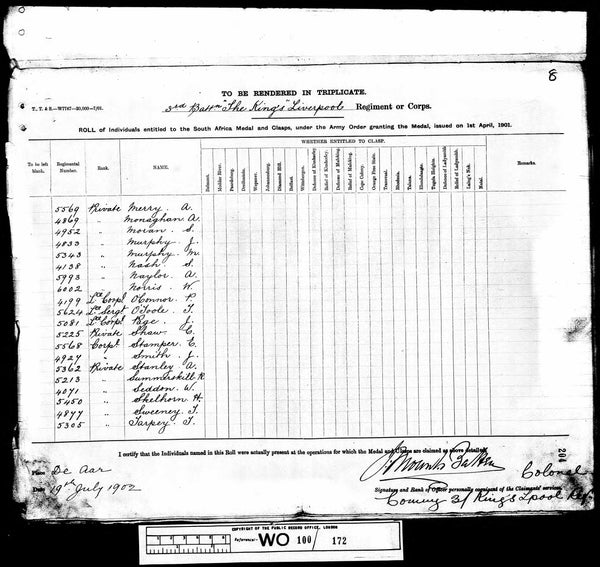 8
TO BE RENDERED IN TRIPLICATE.
3rd Battn "The King's" Liverpool Regiment or Corps.
ROLL of Individuals entitled to the South Africa Medal and Clasps, under the Army Order granting the Medal, issued on 1st April, 1901.
WHETHER ENTITLED TO CLASP.
To be left blank. Regimental Number. Rank. NAME. Belmont. Modder River. Paardeberg. Driefontein. Wepener. Johannesburg. Diamond Hill. Belfast. Wittebergen. Defence of Kimberley. Relief of Kimberley. Defence of Mafeking. Relief of Mafeking. Cape Colony. Orange Free State. Transvaal. Rhodesia. Talana. Elandslaagte. Tugela Heights. Defence of Ladysmith. Relief of Ladysmith. Laing's Nek. Natal. Remarks.
5569 Private Merry. A.
4869 " Monaghan A.
4952 " Moran. S.
4833 " Murphy. J.
5343 " Murphy. M.
4138 " Nash. S.
5993 " Naylor. A.
6002 " Norris. W.
4199 Lce Corpl O'Connor. P.
5624 Lce Sergt O'Toole. T.
5081 Lce Corpl Page. J.
5225 Private Shaw. C.
5568 Corpl Stamper. E.
4927 " Smith. J.
5362 Private Stanley A.
5213 " Summerskill R.
4071 " Seddon. W.
5450 " Shelhorn. H.
4877 " Sweeney. T.
5305 " Tarpey. T.
I certify that the Individuals named in this Roll were actually present at the operations for which the Medal and Clasps are claimed as above detailed.
204
Place De Aar
Colonel
Signature and Rank of Officer personally cognisant of the Claimants' services.
Date 19th July 1902
Commg 3/ King's Lpool Regt
COPYRIGHT OF THE PUBLIC RECORD OFFICE, LONDON
Reference:- WO 100/ 172